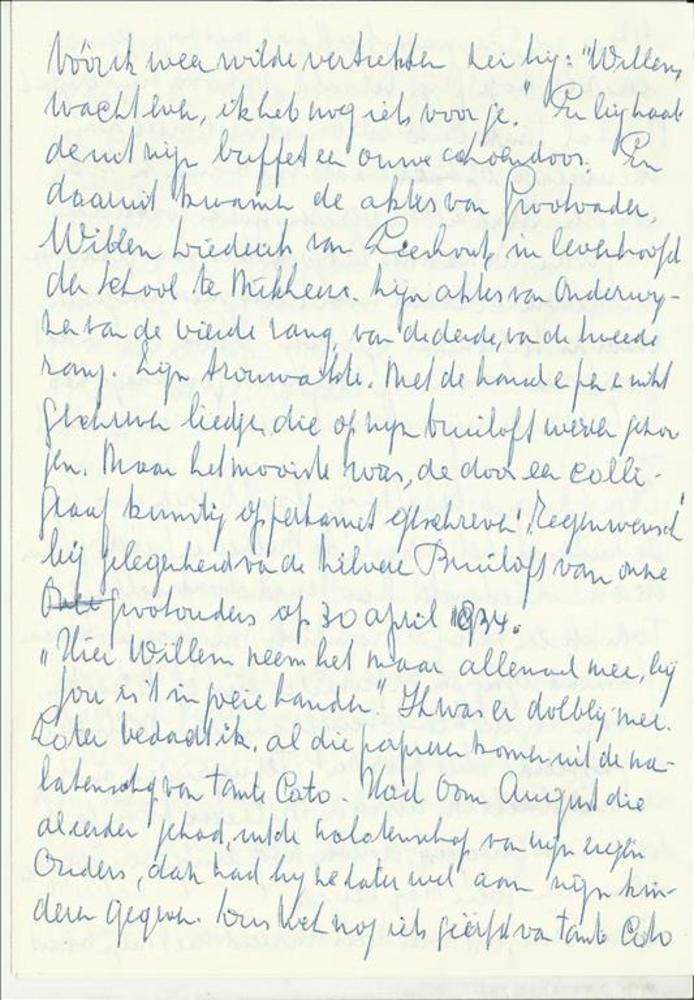 Vóór ik weer wilde vertrekken zei hij: "Willem,
wacht even, ik heb nog iets voor je." En hij haal-
de uit zijn buffet een ouwe schoendoos. En
daaruit kwamen de aktes van Grootvader,
Willem van in leven hoofd
der school te Zijn aktes van Onderwij-
zer van de vierde rang, van de derde, van de tweede
rang. Zijn trouwakte. Met de hand
geschreven liedjes, die op zijn bruiloft werden gezon
gen. Maar het mooiste was, de door een calli-
graaf kunstig op perkament geschreven "Zegenwensch"
bij gelegenheid van de zilveren Bruiloft van onze
grootouders op 30 april 1934.
"Hier Willem neem het maar allemaal mee, bij
jou is 't in goeie handen". Ik was er dolblij mee.
Later bedacht ik, al die papieren komen uit de na-
latenschap van tante Cato. Had Oom August die
al eerder gehad, uit de nalatenschap van zijn eigen
Ouders, dan had hij ze later wel aan zijn kin-
deren gegeven. dus wel nog iets geërfd van tante Cato